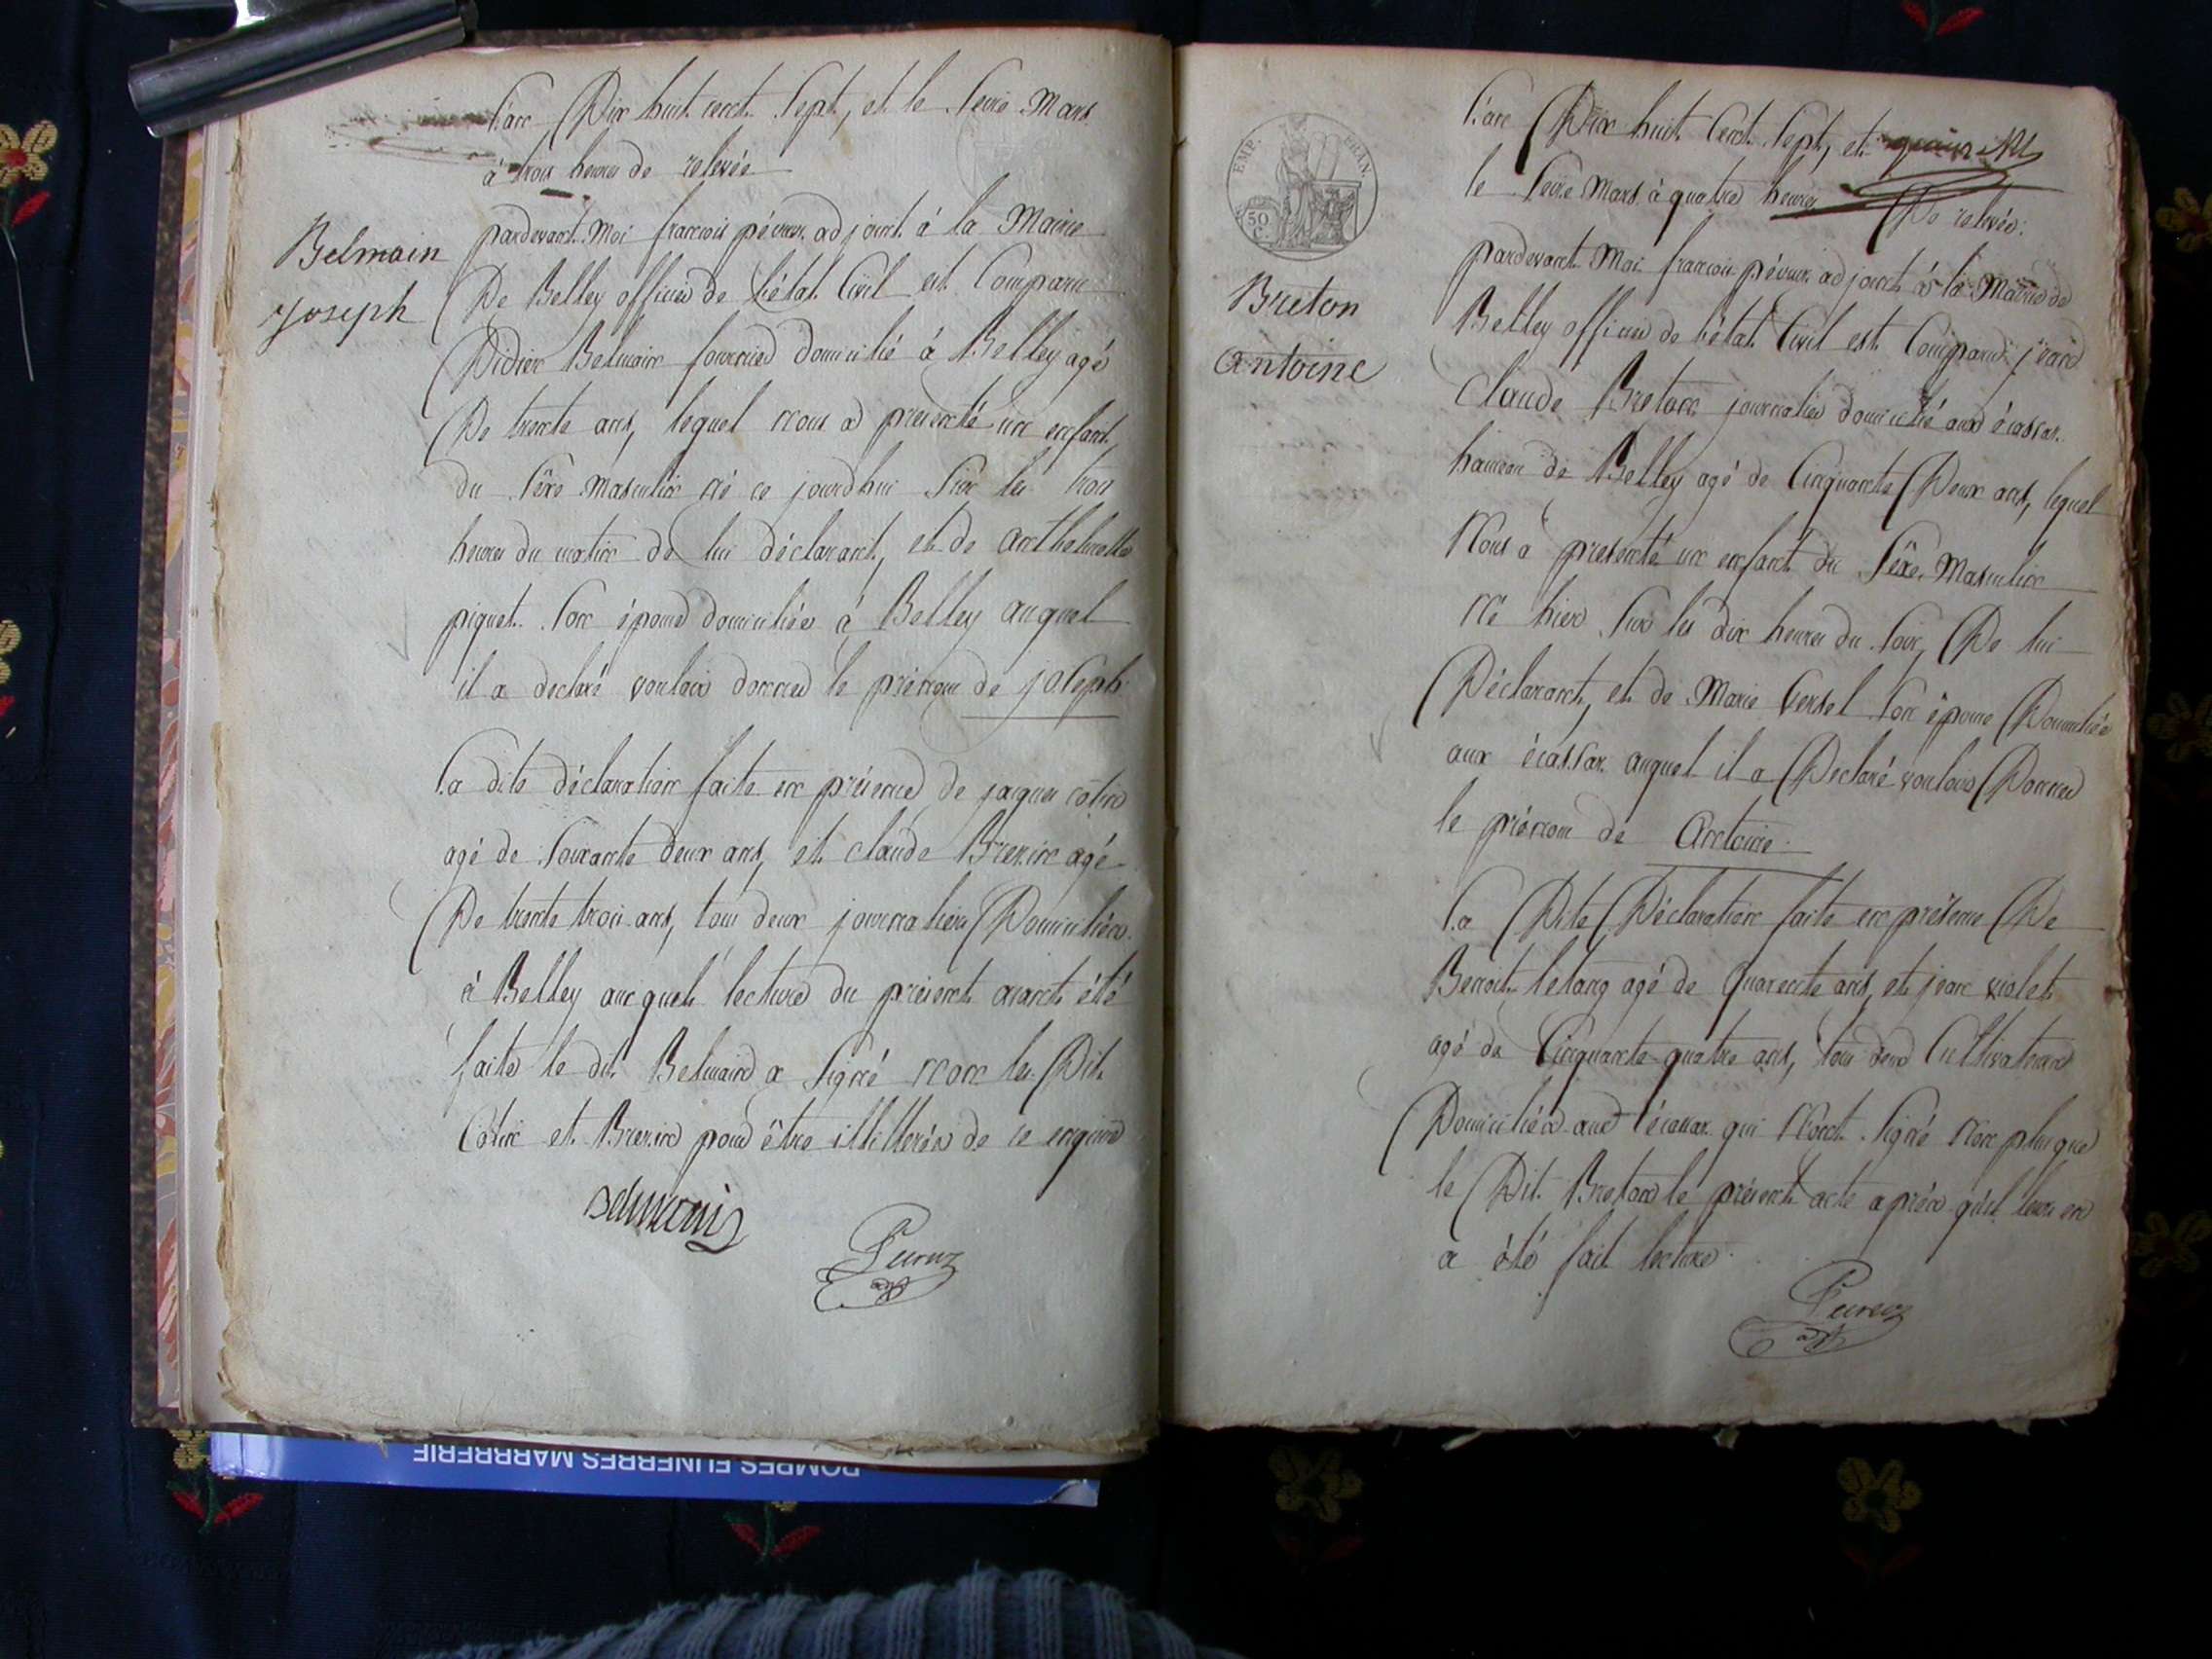 L'an Dix huit cent Sept, et le Seize Mars
à trois heures de relevée
Belmain
Joseph
pardevant Moi francois péureux adjoint à la Mairie
De Belley officier de l'état Civil est Comparu
Didier Belmain domicilié à Belley agé
De trente ans, lequel nous a présenté un enfant
du Sêxe Masculin né ce jourdhui Sur les trois
heures du matin de lui déclarant, et de anthelmette
piquet Son épouse domiciliée à Belley auquel
il a declaré vouloir donner le prénom de joseph
La dite déclaration faite en présence de jaques cotin
agé de Soixante deux ans, et claude Brenin agé
De trente trois ans, tous deux journaliers Domiciliés
à Belley auxquels lecture du présent aiant été
faite le dit Belmain a Signé non les Dits
Cotin et Brenin pour être illitterés de ce enquis
Belmain
L'an Dix huit Cent Sept, et
le Seize Mars à quatre heures De relevée
EMP. FRAN.
50 C.
Breton
Antoine
pardevant Moi francois péureux adjoint à la Mairie de
Belley officier de l'état Civil est Comparu jean
Claude Breton journalier domicilié aux écassas
hameau de Belley agé de Cinquante Deux ans, lequel
Nous a présenté un enfant du Sêxe Masculin
Né hier Sur les dix heures du Soir, De lui
Déclarant, et de Marie Son épouse Domiciliée
aux écassas auquel il a Declaré vouloir Donner
le prénom de Antoine
La Dite Déclaration faite en présence De
Benoit letang agé de quarente ans, et jean violet
agé de Cinquante quatre ans, tous deux Cultivateurs
Domiciliés aux écassas qui N'ont Signé Non plus que
le Dit Breton le présent acte après qu'il leur en
a été fait lecture
POMPES FUNEBRES MARRRERIE